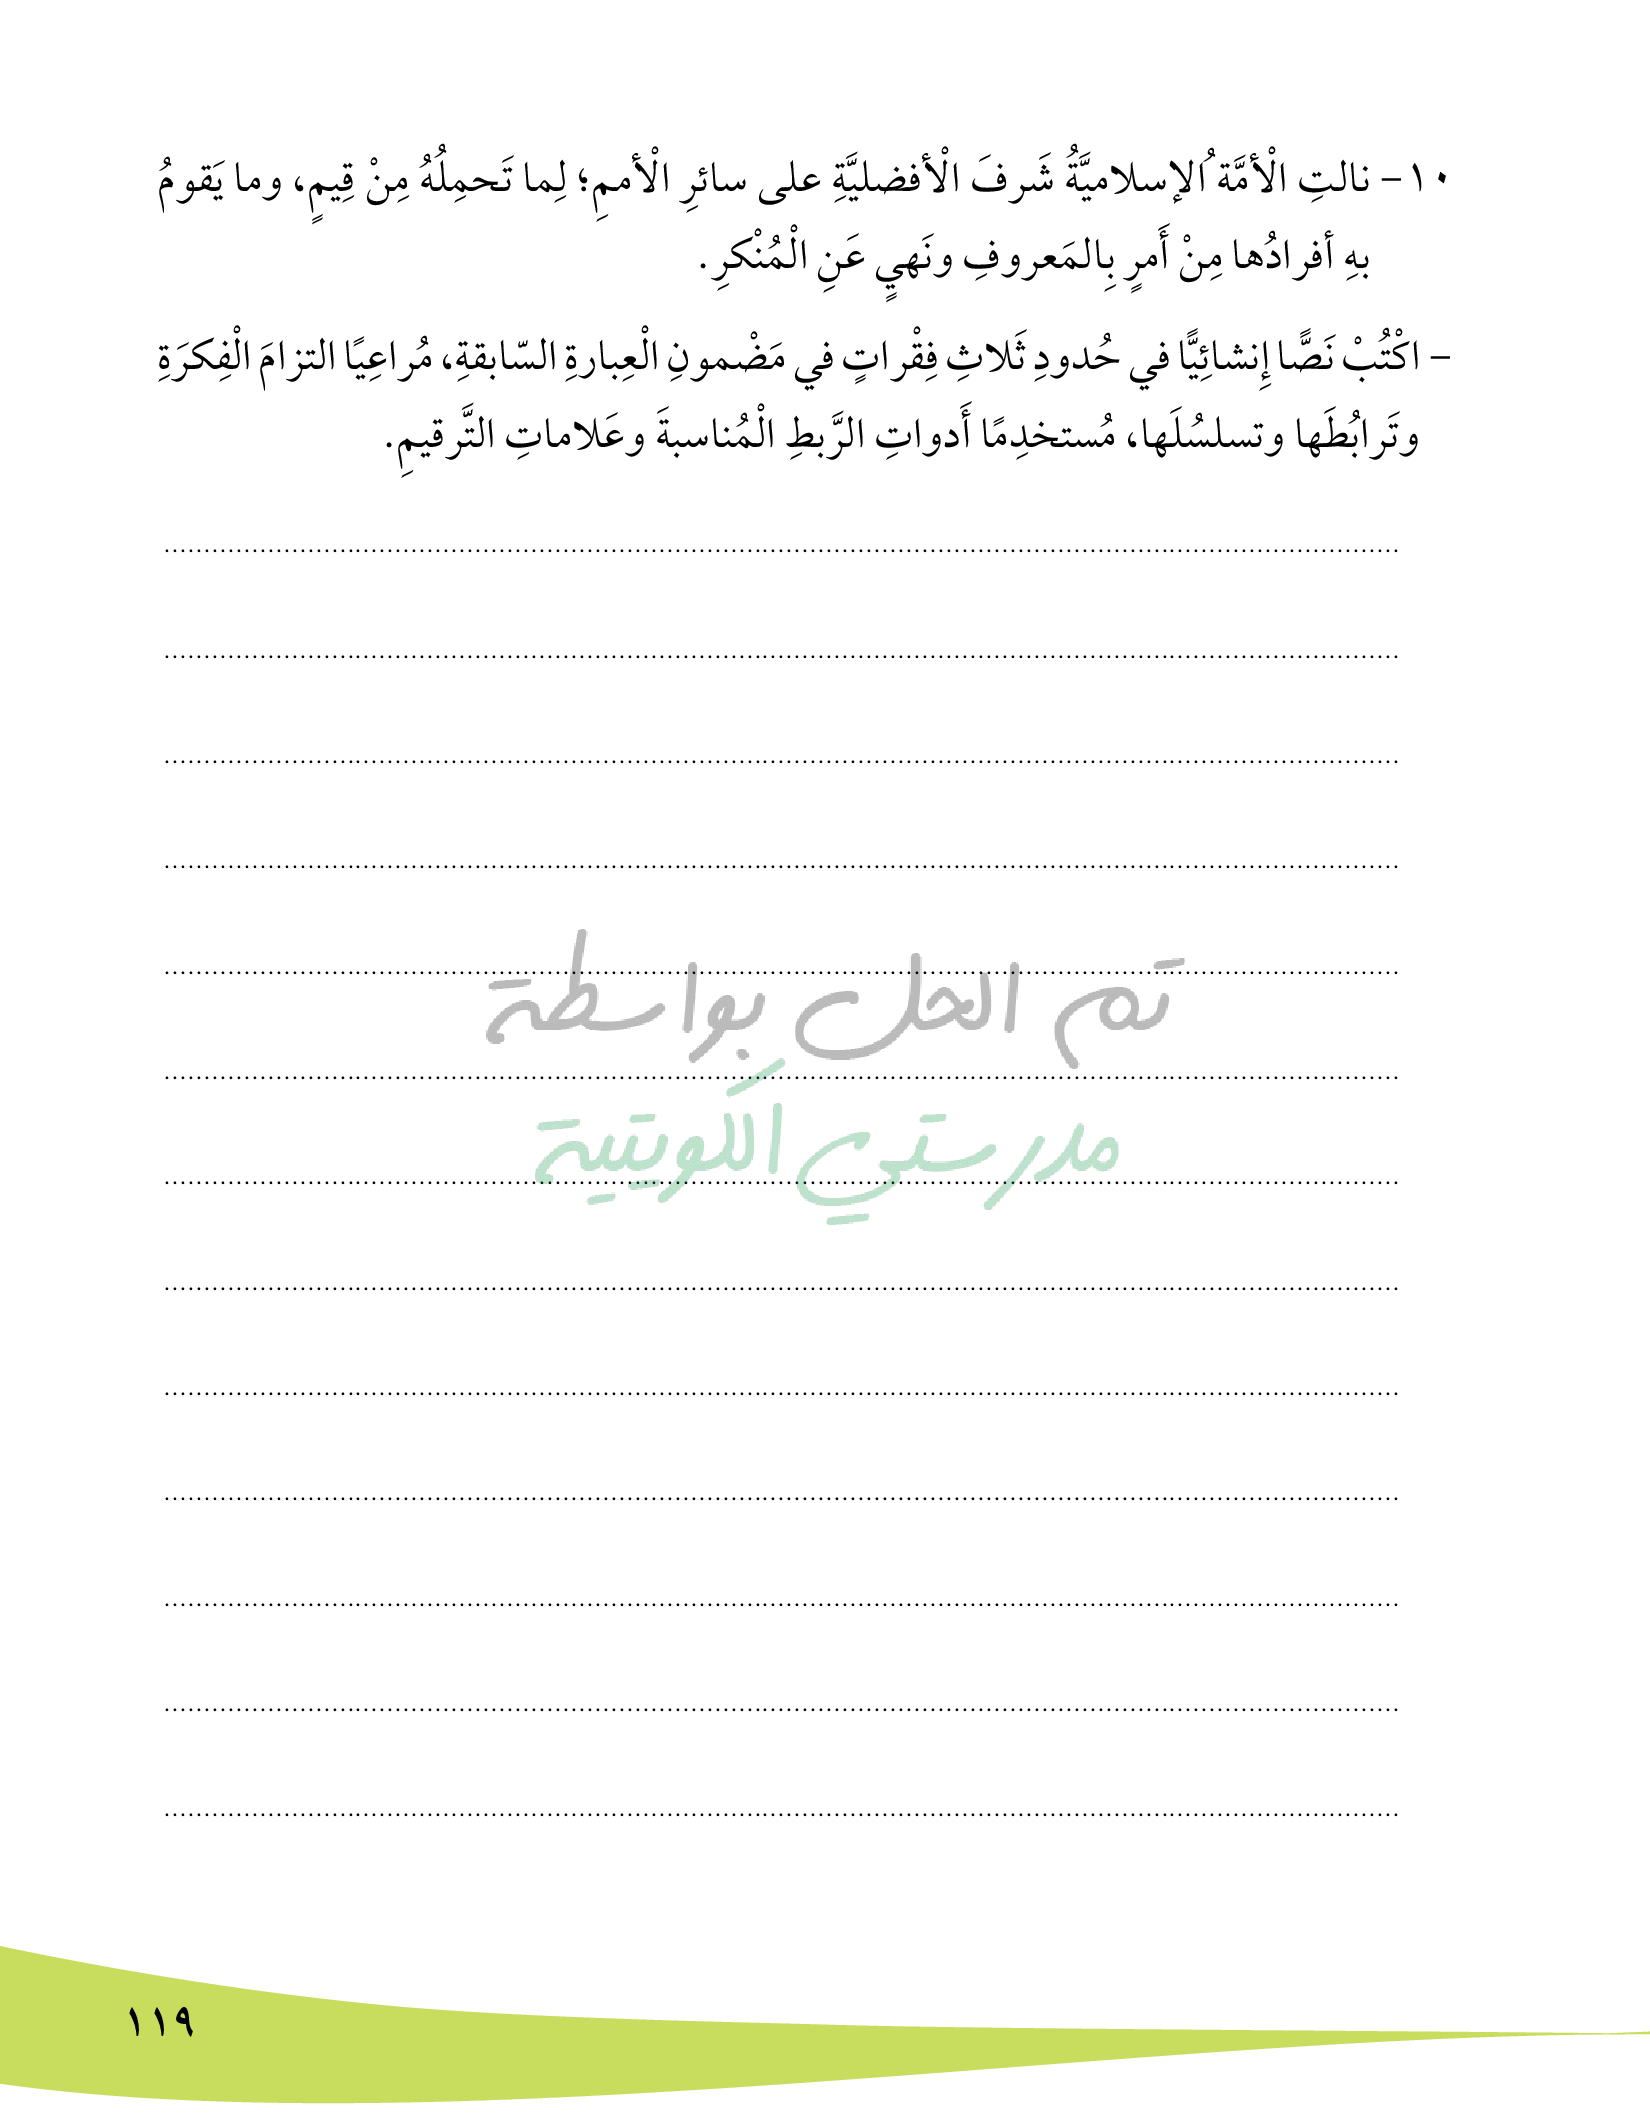 ١٠- نالتِ الْأمَّة ُالإسلاميَّةُ شَرفَ الْأفضليَّةِ على سائرِ الْأممِ؛ لِما تَحمِلُهُ مِنْ قِيمٍ، وما يَقومُ
بهِ أفرادُها مِنْ أَمرٍ بِالمَعروفِ ونَهيٍ عَنِ الْمُنْكرِ.
- اكْتُبْ نَصًّا إِنشائِيًّا في حُدودِ ثَلاثِ فِقْراتٍ في مَضْمونِ الْعِبارةِ السّابقةِ، مُراعِيًا التزامَ الْفِكرَةِ
وتَرابُطَها وتسلسُلَها، مُستخدِمًا أَدواتِ الرَّبطِ الْمُناسبةَ وعَلاماتِ التَّرقيمِ.
تم الحل بواسطة
مدرستي الكويتية
١١٩